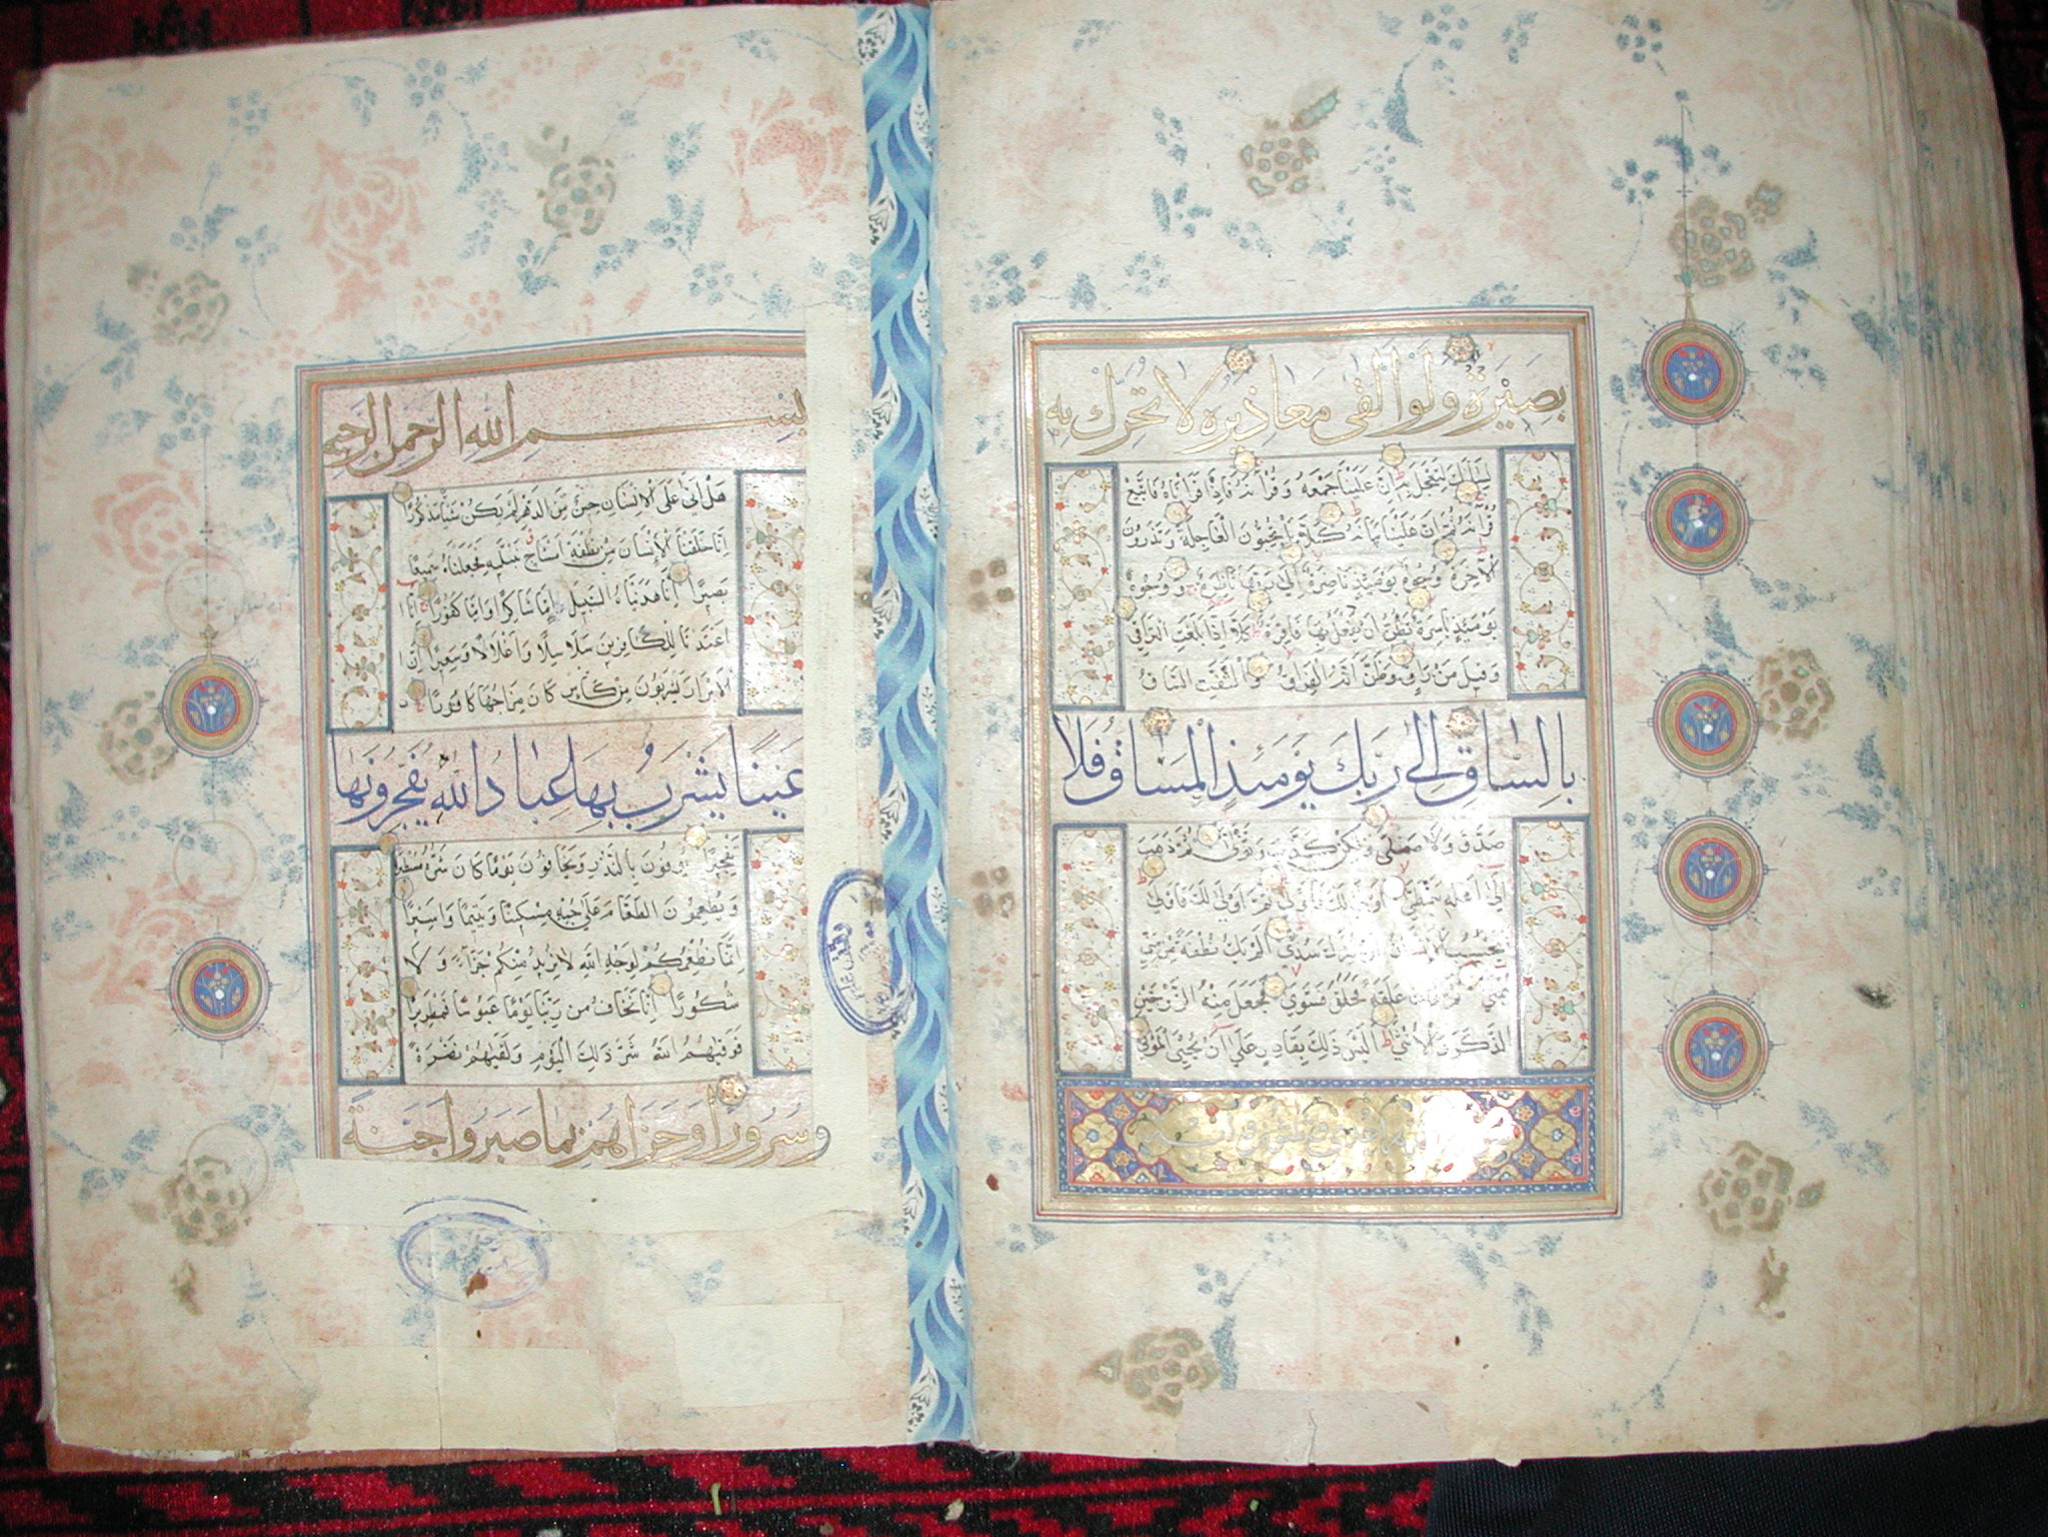 بصيرة ولو القى معاذيره لا تحرك به
لسانك لتعجل به ان علينا جمعه وقرآنه فاذا قراناه فاتبع
قرآنه ثم ان علينا بيانه كلا بل تحبون العاجلة وتذرون
الآخرة وجوه يومئذ ناضرة الى ربها ناظرة ووجوه
يومئذ باسرة تظن ان يفعل بها فاقرة كلا اذا بلغت التراقي
وقيل من راق وظن انه الفراق والتفت الساق
بالساق الى ربك يومئذ المساق فلا
صدق ولا صلى ولكن كذب وتولى ثم ذهب
الى اهله يتمطى اولى لك فاولى ثم اولى لك فاولى
يحسب الانسان ان يترك سدى الم يك نطفة من مني
يمنى ثم كان علقة فخلق فسوى فجعل منه الزوجين
الذكر والانثى اليس ذلك بقادر على ان يحيي الموتى
بسم الله الرحمن الرحيم
هل اتى على الانسان حين من الدهر لم يكن شيئا مذكورا
انا خلقنا الانسان من نطفة امشاج نبتليه فجعلناه سميعا
بصيرا انا هديناه السبيل اما شاكرا واما كفورا انا
اعتدنا للكافرين سلاسلا واغلالا وسعيرا ان
الابرار يشربون من كاس كان مزاجها كافورا
عينا يشرب بها عباد الله يفجرونها
تفجيرا يوفون بالنذر ويخافون يوما كان شره مستطيرا
ويطعمون الطعام على حبه مسكينا ويتيما واسيرا
انما نطعمكم لوجه الله لا نريد منكم جزاء ولا
شكورا انا نخاف من ربنا يوما عبوسا قمطريرا
فوقيهم الله شر ذلك اليوم ولقيهم نضرة
وسرورا وجزاهم بما صبروا جنة